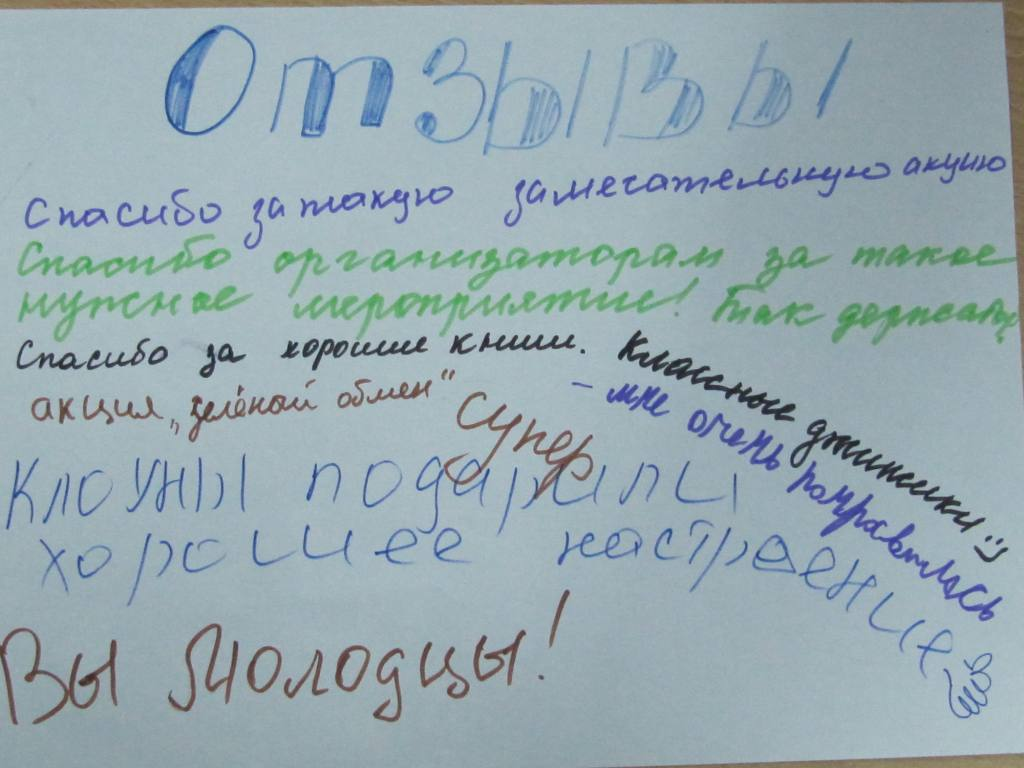 Отзывы
Спасибо за такую замечательную акцию
Спасибо организаторам за такое
нужное мероприятие! Так держать
Спасибо за хорошие книги.
Классные джинсики :)
- мне очень понравилось
акция „зелёный обмен“
Супер
Клоуны подарили
хорошее настроение
Вы Молодцы!